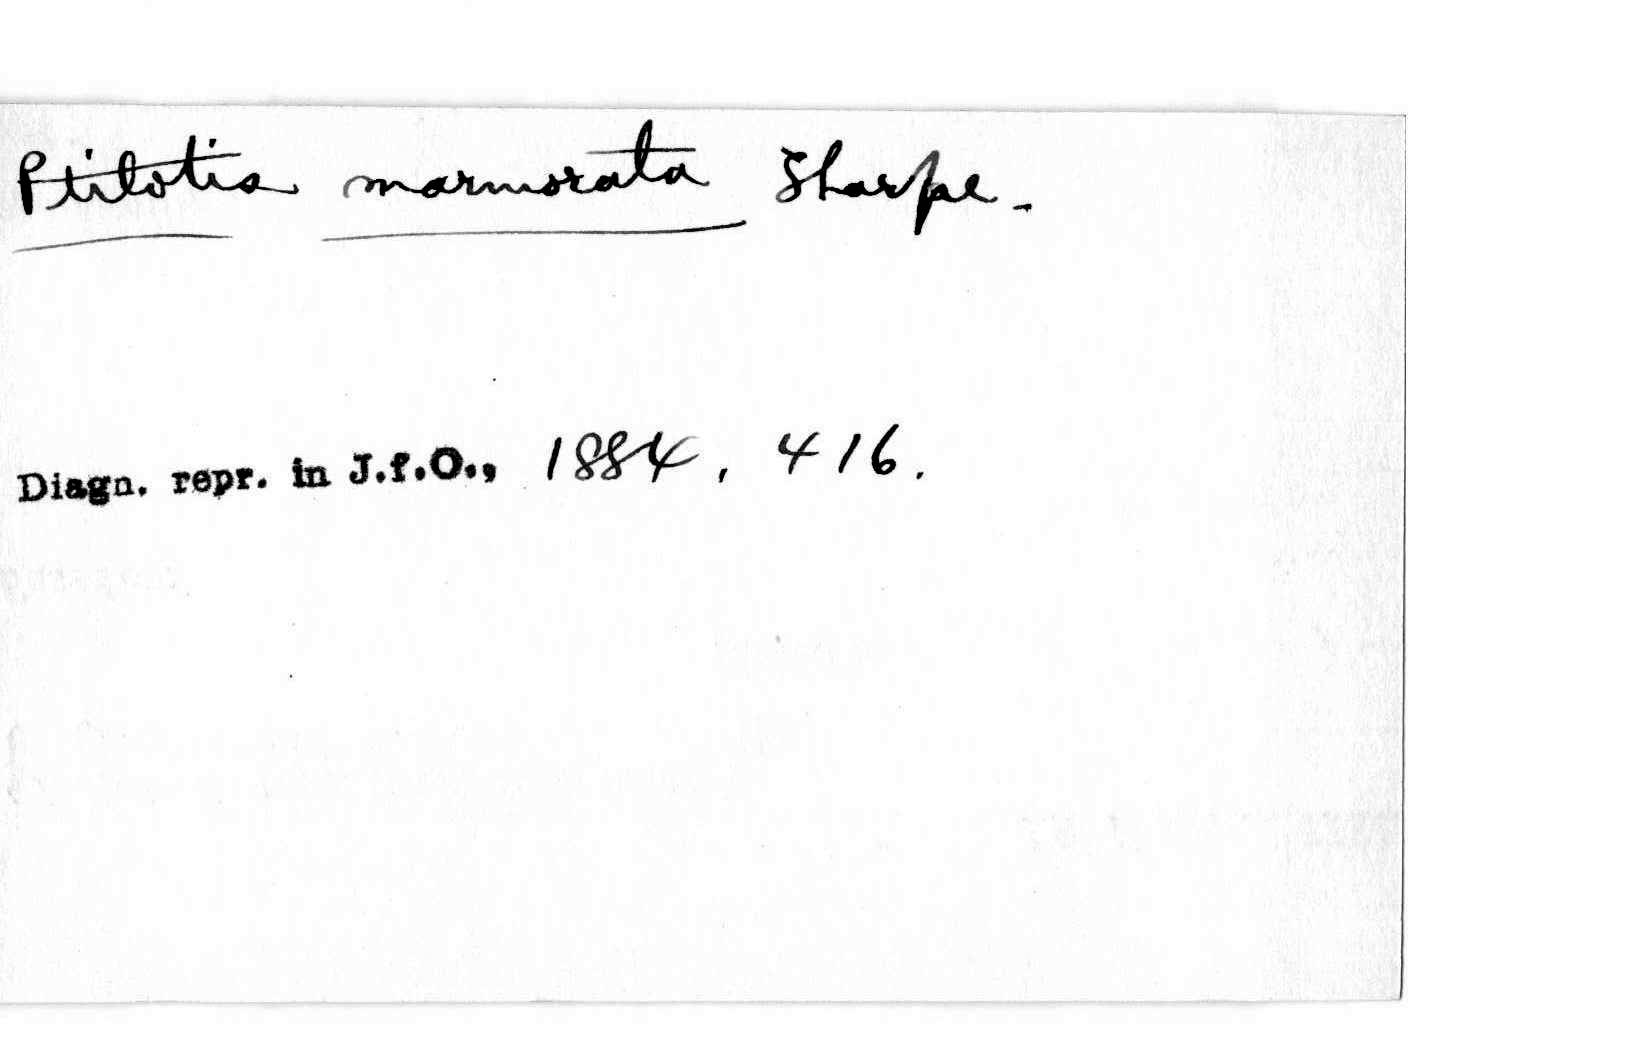 Ptilotis marmorata Sharpe.
Diagn. repr. in J.f.O., 1884, 416.